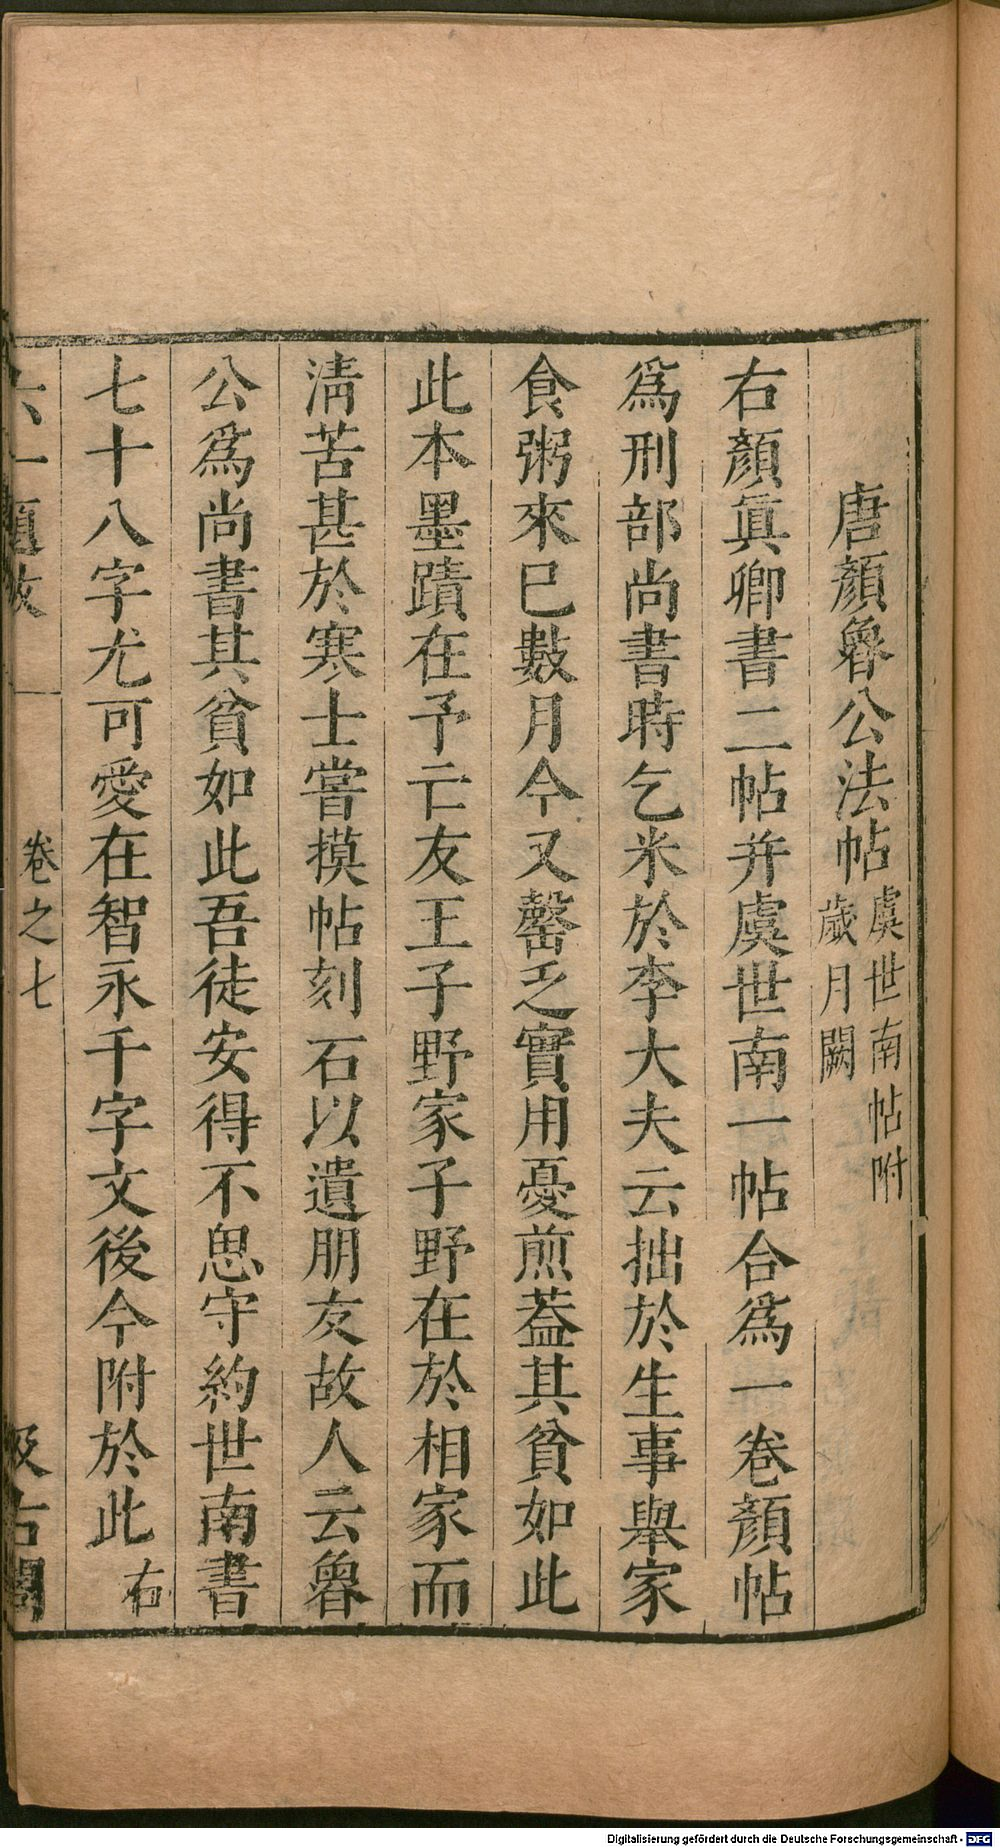 唐顏魯公法帖虞世南帖附
歲月闕
右顏眞卿書二帖并虞世南一帖合爲一卷顏帖
爲刑部尚書時乞米於李大夫云拙於生事舉家
食粥來已數月今又罄乏實用憂煎葢其貧如此
此本墨蹟在予亡友王子野家子野在於相家而
淸苦甚於寒士嘗摸帖刻石以遺朋友故人云魯
公爲尚書其貧如此吾徒安得不思守約世南書
七十八字尤可愛在智永千字文後今附於此右
六一題跋 卷之七 汲古閣
Digitalisierung gefördert durch die Deutsche Forschungsgemeinschaft - DFG